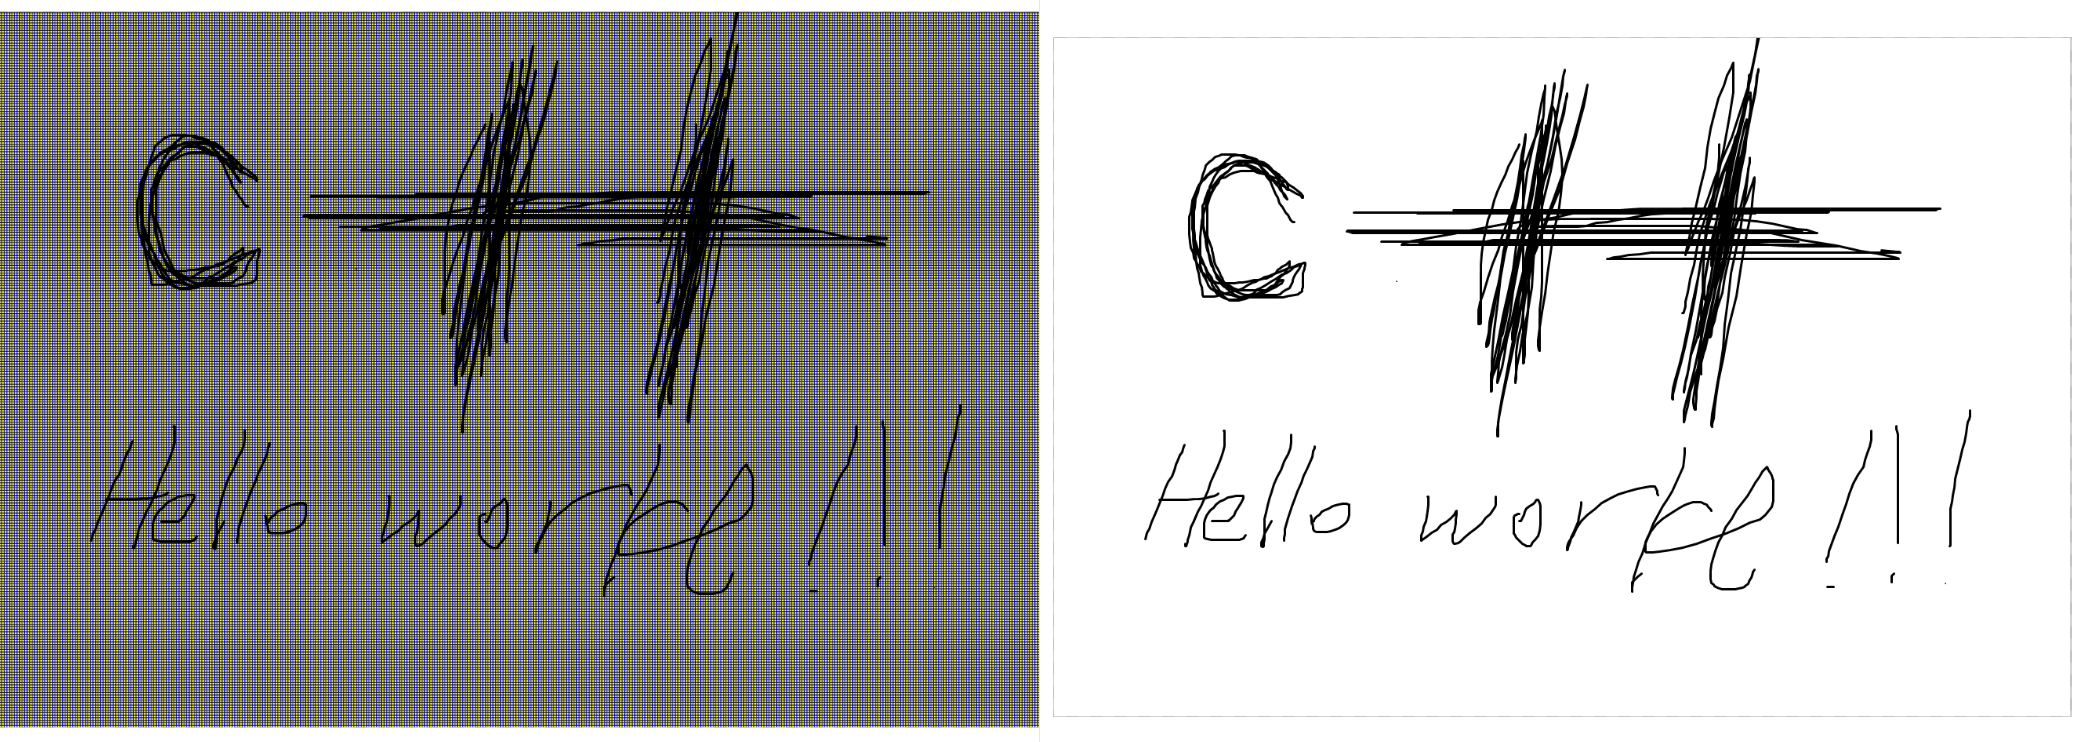 C++
Hello world!!!
C++
Hello world!!!